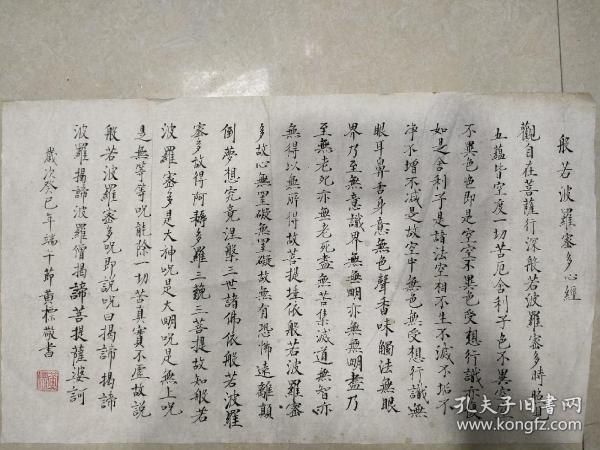 般若波羅蜜多心經
觀自在菩薩行深般若波羅蜜多時照見
五蘊皆空度一切苦厄舍利子色不異空空
不異色色即是空空不異色受想行識亦復
如是舍利子是諸法空相不生不滅不垢不
淨不增不減是故空中無色無受想行識無
眼耳鼻舌身意無色聲香味觸法無眼
界乃至無意識界無無明亦無無明盡乃
至無老死亦無老死盡無苦集滅道無智亦
無得以無所得故菩提薩埵依般若波羅蜜
多故心無罣礙無罣礙故無有恐怖遠離顛
倒夢想究竟涅槃三世諸佛依般若波羅
蜜多故得阿耨多羅三藐三菩提故知般若
波羅蜜多是大神咒是大明咒是無上咒
是無等等咒能除一切苦真實不虛故說
般若波羅蜜多咒即說咒曰揭諦揭諦
波羅揭諦波羅僧揭諦菩提薩婆訶
歲次癸巳年端午節黃標敬書
孔夫子旧书网
www.kongfz.com